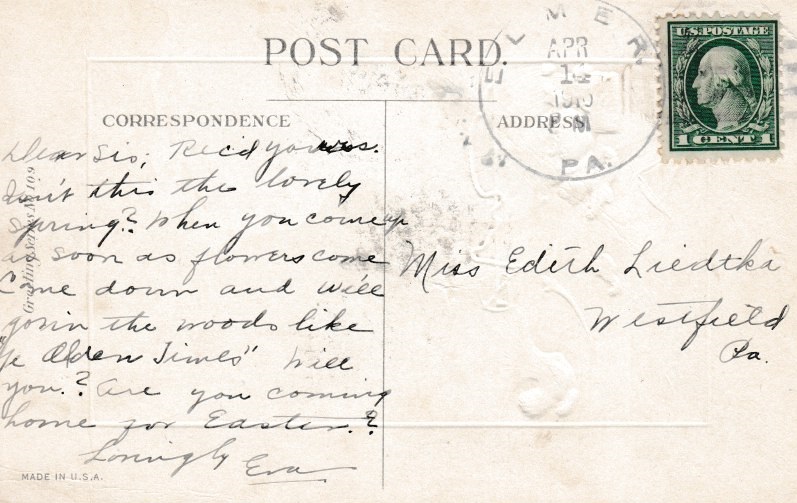 POST CARD.
ELMER
APR
14
M
PA.
U.S. POSTAGE
1 CENT 1
CORRESPONDENCE
ADDRESS
Dear Sis, Rec'd yours.
Isn't this the lovely
spring? When you come up
as soon as flowers come
come down and we'll
go in the woods like
"Ye Olden Times" will
you.? Are you coming
home for Easter.?
Lovingly Eva
Miss Edith Liedtka
Westfield
Pa.
Greeting Series No 109
MADE IN U.S.A.